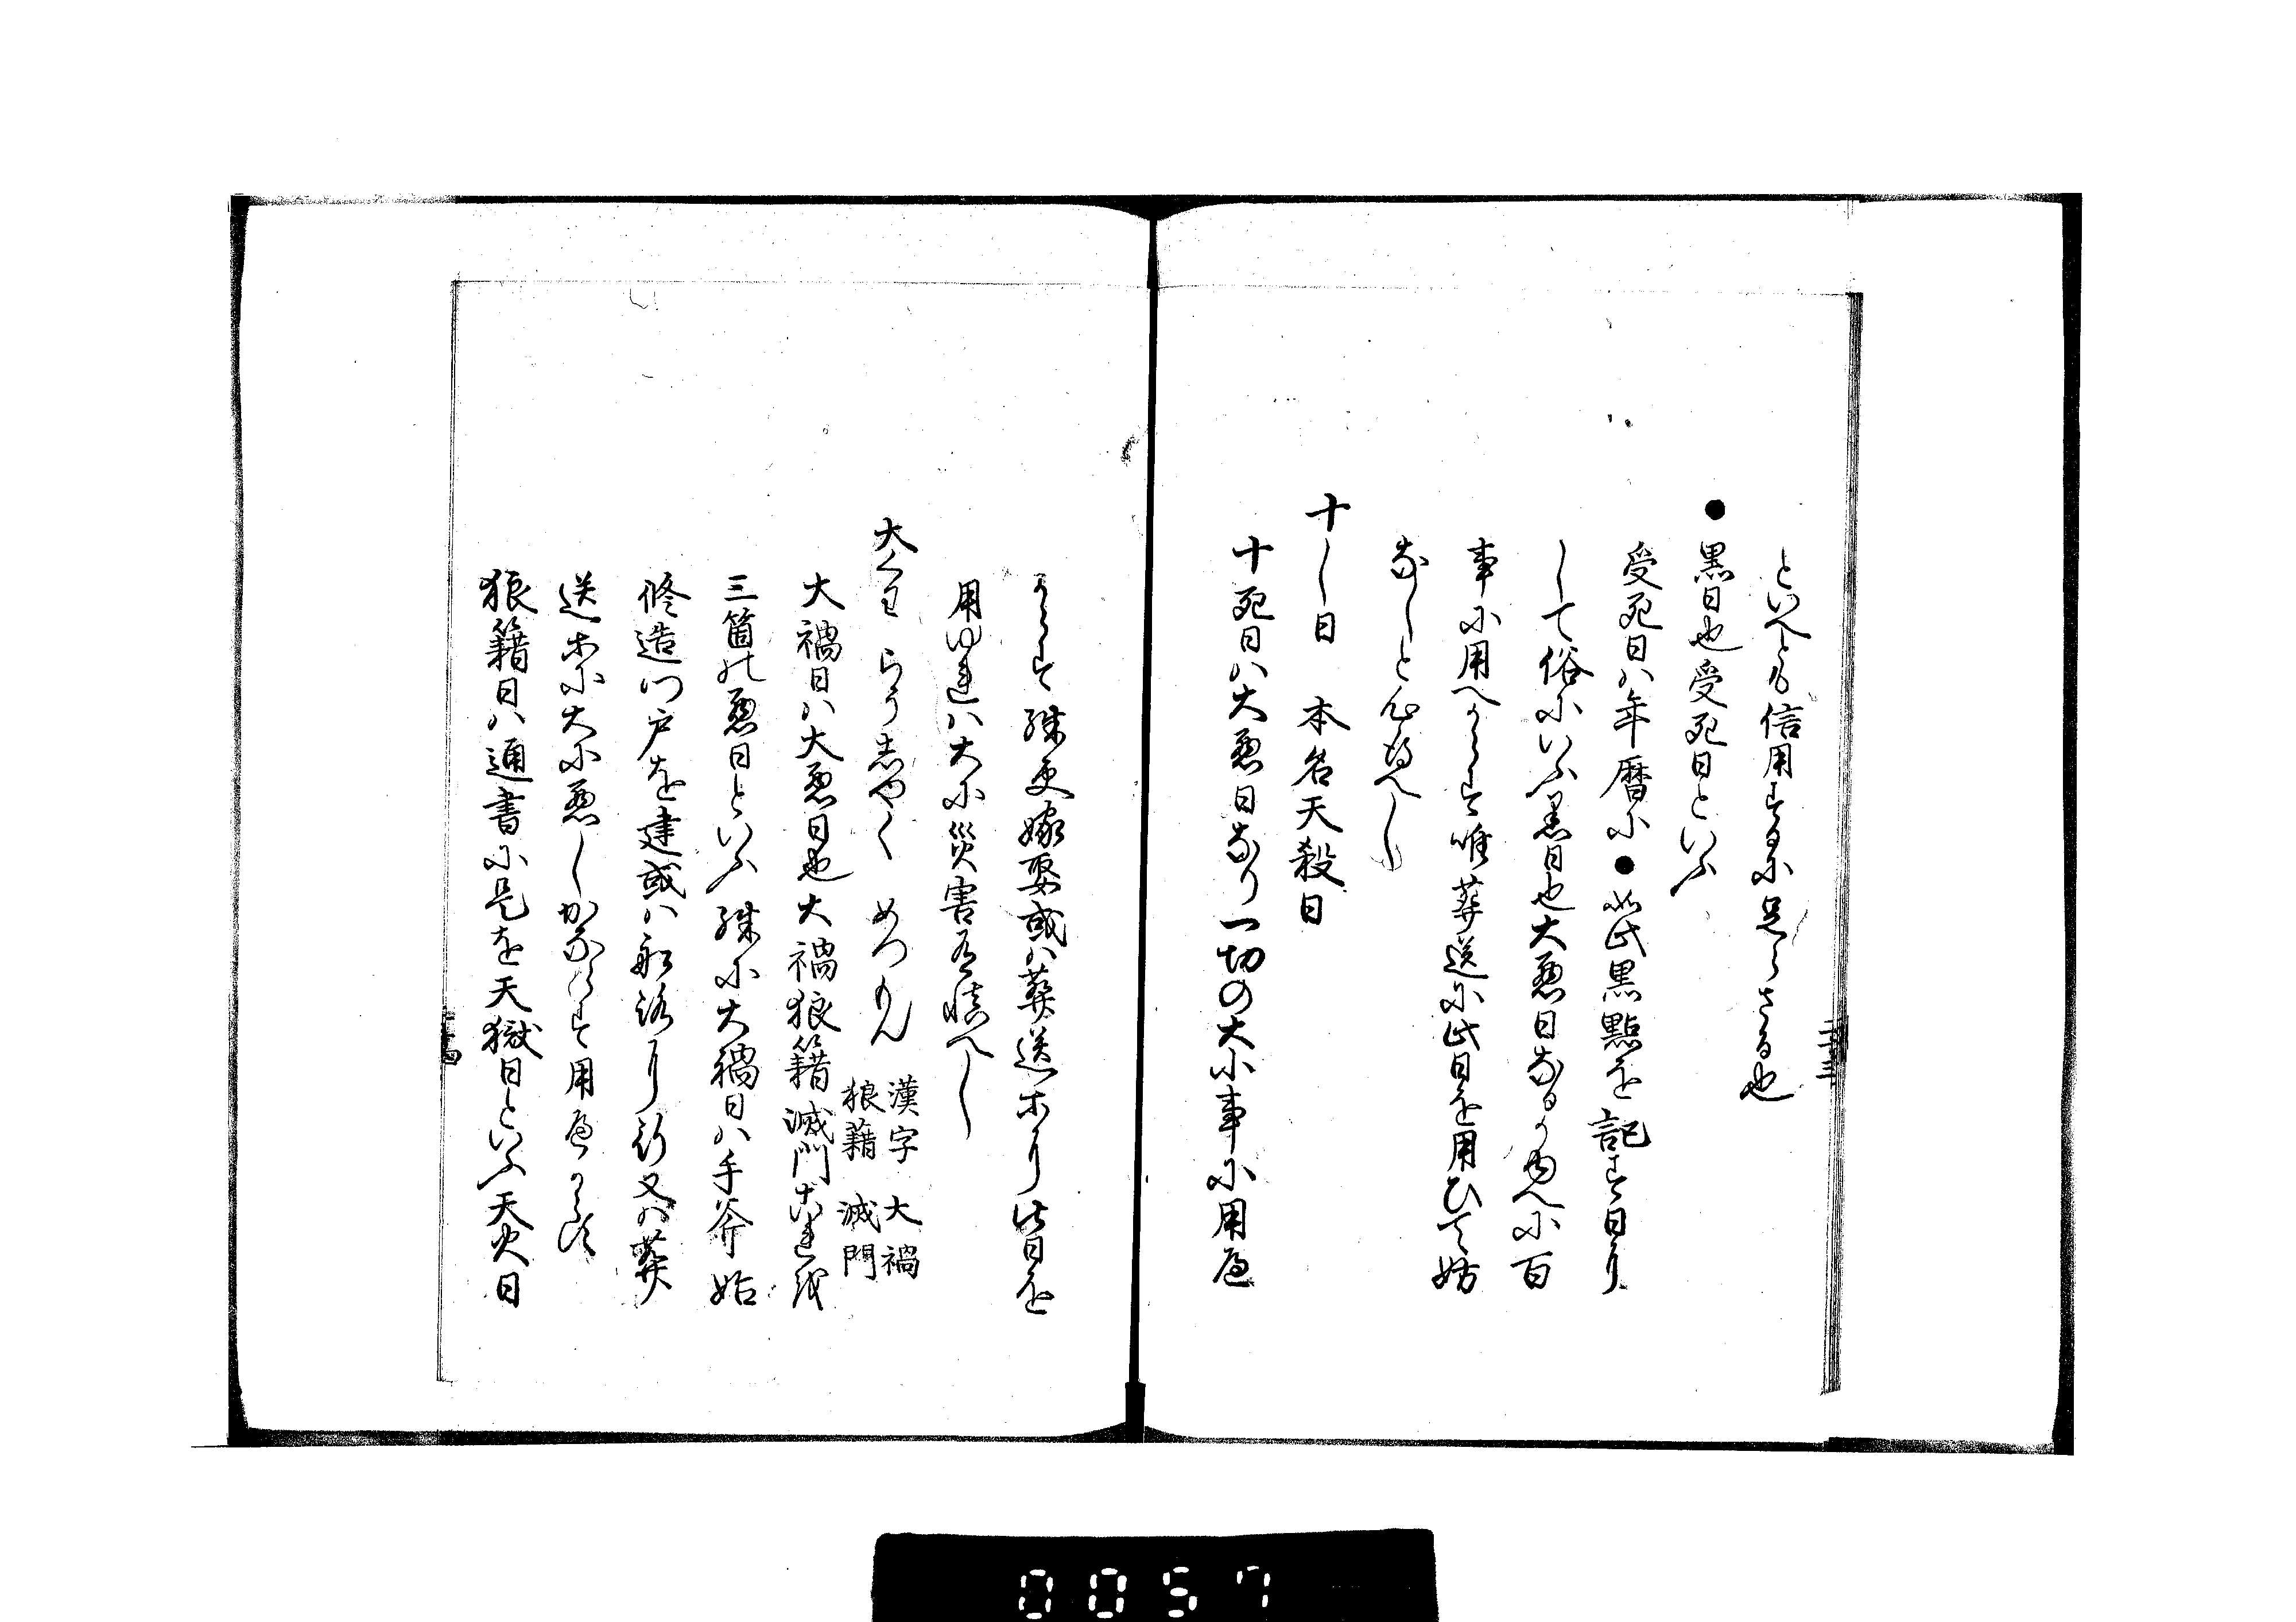 といへとも信用するに足らさる也
●黒日也受死日といふ
受死日ハ年暦に●如此黒點を記す日り
して俗にいふ黒日也大悪日なるかゆへに百
事に用へからす唯葬送に此日を用ひて妨
なしと心得へし
十し日 本名天殺日
十死日ハ大悪日なり一切の大小事に用へ
からす殊更嫁娶或ハ葬送ホり此日を
用ゆれハ大に災害有慎へし
大くわ らうしやく めつもん 漢字 大禍 狼藉 滅門
大禍日ハ大悪日也大禍狼藉滅門これを
三箇の悪日といふ殊に大禍日ハ手斧始
修造門戸を建或ハ船路り行又ハ葬
送ホに大に悪しかならす用へからす
狼籍日ハ通書に是を天獄日といふ天火日
二十三
二十四
0057